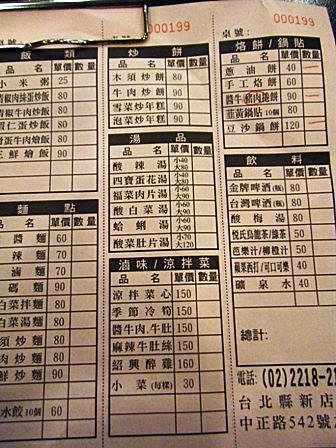 000199
000199
桌號
桌號:
飯 類
品 名 單價 數量
小 米 粥 25
青椒肉絲蛋炒飯 80
青椒牛肉炒飯 80
蝦仁蛋炒飯 80
滑蛋牛肉飯 80
三鮮燴飯 90
麵 點
品 名 單價 數量
醬 麵 60
辣 麵 70
滷 麵 70
碼 麵 90
白菜拌麵 80
白菜湯麵 80
須炒麵 80
肉炒麵 80
鮮炒麵 90
水餃10個 60
炒 餅
品 名 單價 數量
木須炒餅 80
牛肉炒餅 80
雪菜炒年糕 80
泡菜炒年糕 80
湯 品
品 名 單價 數量
酸辣湯 小40 大80
四寶蛋花湯 小50 大80
福菜肉片湯 小50 大90
酸白菜湯 小50 大80
蛤蜊湯 小50 大80
酸菜肚片湯 小70 大120
滷味/涼拌菜
品 名 單價 數量
涼拌菜心 150
季節冷筍 150
醬牛肉.牛肚 150
麻辣牛肚絲 150
紹興醉雞 160
小 菜(每樣) 30
烙餅/鍋貼
品 名 單價 數量
蔥油餅 40
手工烙餅 60
醬牛豬肉捲餅 90
韭黃鍋貼10個 80
豆沙鍋餅 120
飲 料
品 名 單價 數量
金牌啤酒(瓶) 80
台灣啤酒(瓶) 80
酸 梅 湯 80
悅氏烏龍茶/綠茶 50
芭樂汁/柳橙汁 50
蘋果西打/可口可樂 40
礦 泉 水 40
總計:
電話: (02)2218-2
台北縣新店
中正路542號